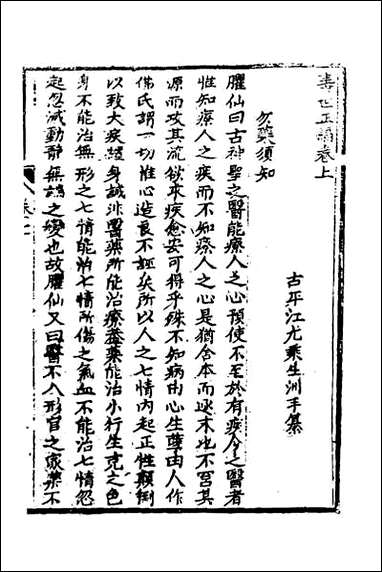 壽世正編卷上
古平江尤乘生洲手纂
勿藥須知
臞仙曰古神聖之醫能療人之心預使不至於有疾今之醫者
惟知療人之疾而不知療人之心是猶舍本而逐末也不窮其
源而攻其流欲求疾愈安可得乎殊不知病由心生孽由人作
佛氏謂一切惟心造良不誣矣所以人之七情內起正性顛倒
以致大疾纏身誠非醫藥所能治療蓋藥能治小行生克之色
身不能治無形之七情能治七情所傷之氣血不能治七情忽
起忽滅動靜無端之變也故臞仙又曰醫不入形官之家藥不
卷上